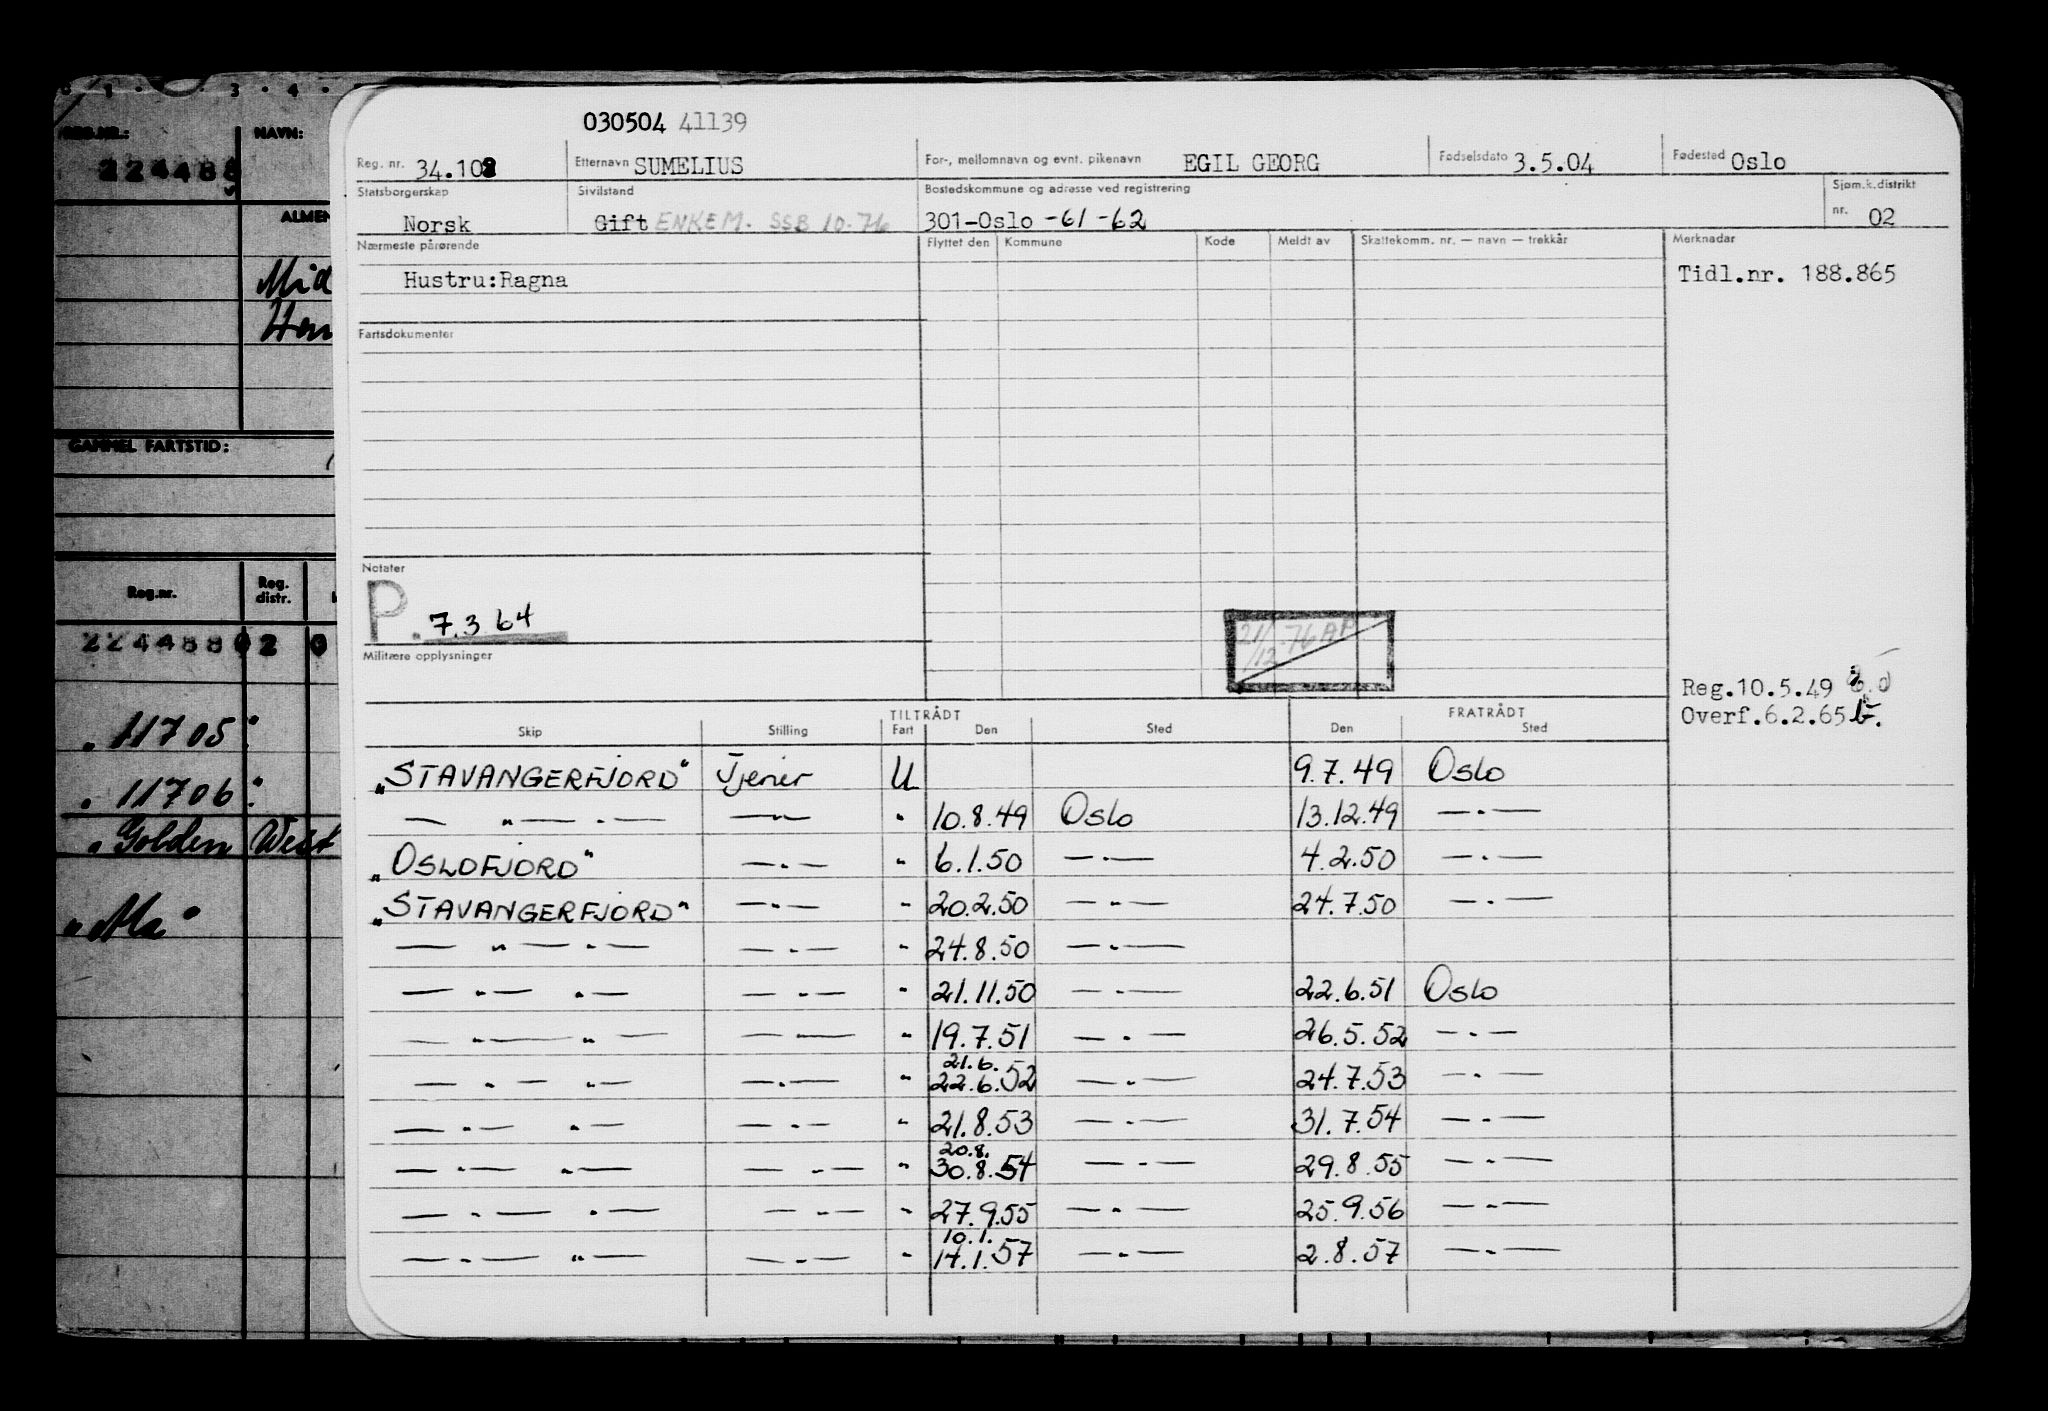 030504 41139
Reg. nr. 34.108 Etternavn SUMELIUS For-, mellomnavn og evnt. pikenavn EGIL GEORG Fødselsdato 3.5.04 Fødested Oslo
Statsborgerskap Norsk Sivilstand Gift ENKEM. SSB 10.76 Bostedskommune og adresse ved registrering 301-Oslo -61 -62 Sjøm.k.distrikt nr. 02
Nærmeste pårørende Flyttet den Kommune Kode Meldt av Skattekomm. nr. — navn — trekkår Merknader
Hustru:Ragna
Tidl.nr. 188.865
Fartsdokumenter
Notater
P. 7.3 64
21/12.76 AP
Militære opplysninger
Reg.10.5.49
Overf.6.2.65
TILTRÅDT FRATRÅDT
Skip Stilling Fart Den Sted Den Sted
„STAVANGERFJORD" Tjener U 9.7.49 Oslo
— " — . — — " — " 10.8.49 Oslo 13.12.49 — . —
„OSLOFJORD" — . — " 6.1.50 — . — 4.2.50 — . —
„STAVANGERFJORD" — . — " 20.2.50 — . — 24.7.50 — . —
— " — . — — . — " 24.8.50 — . —
— " — . — — . — " 21.11.50 — . — 22.6.51 Oslo
— " — " — — " — " 19.7.51 — . — 26.5.52 — . —
21.6.
— . — " — — . — " 22.6.52 — . — 24.7.53 — . —
— " — " — — . — " 21.8.53 — . — 31.7.54 — . —
20.8.
— . — " — — . — " 30.8.54 — . — 29.8.55 — . —
— . — . — — . — " 27.9.55 — . — 25.9.56 — . —
10.1.
— . — " — — . — " 14.1.57 — . — 2.8.57 — . —
1 . . 3 . 4 .
REG.NR.: NAVN:
224488
ALMEN
Mid
GAMMEL FARTSTID:
Reg.nr. Reg. distr.
224488 02 0
„ 11705"
„ 11706"
„ Golden West